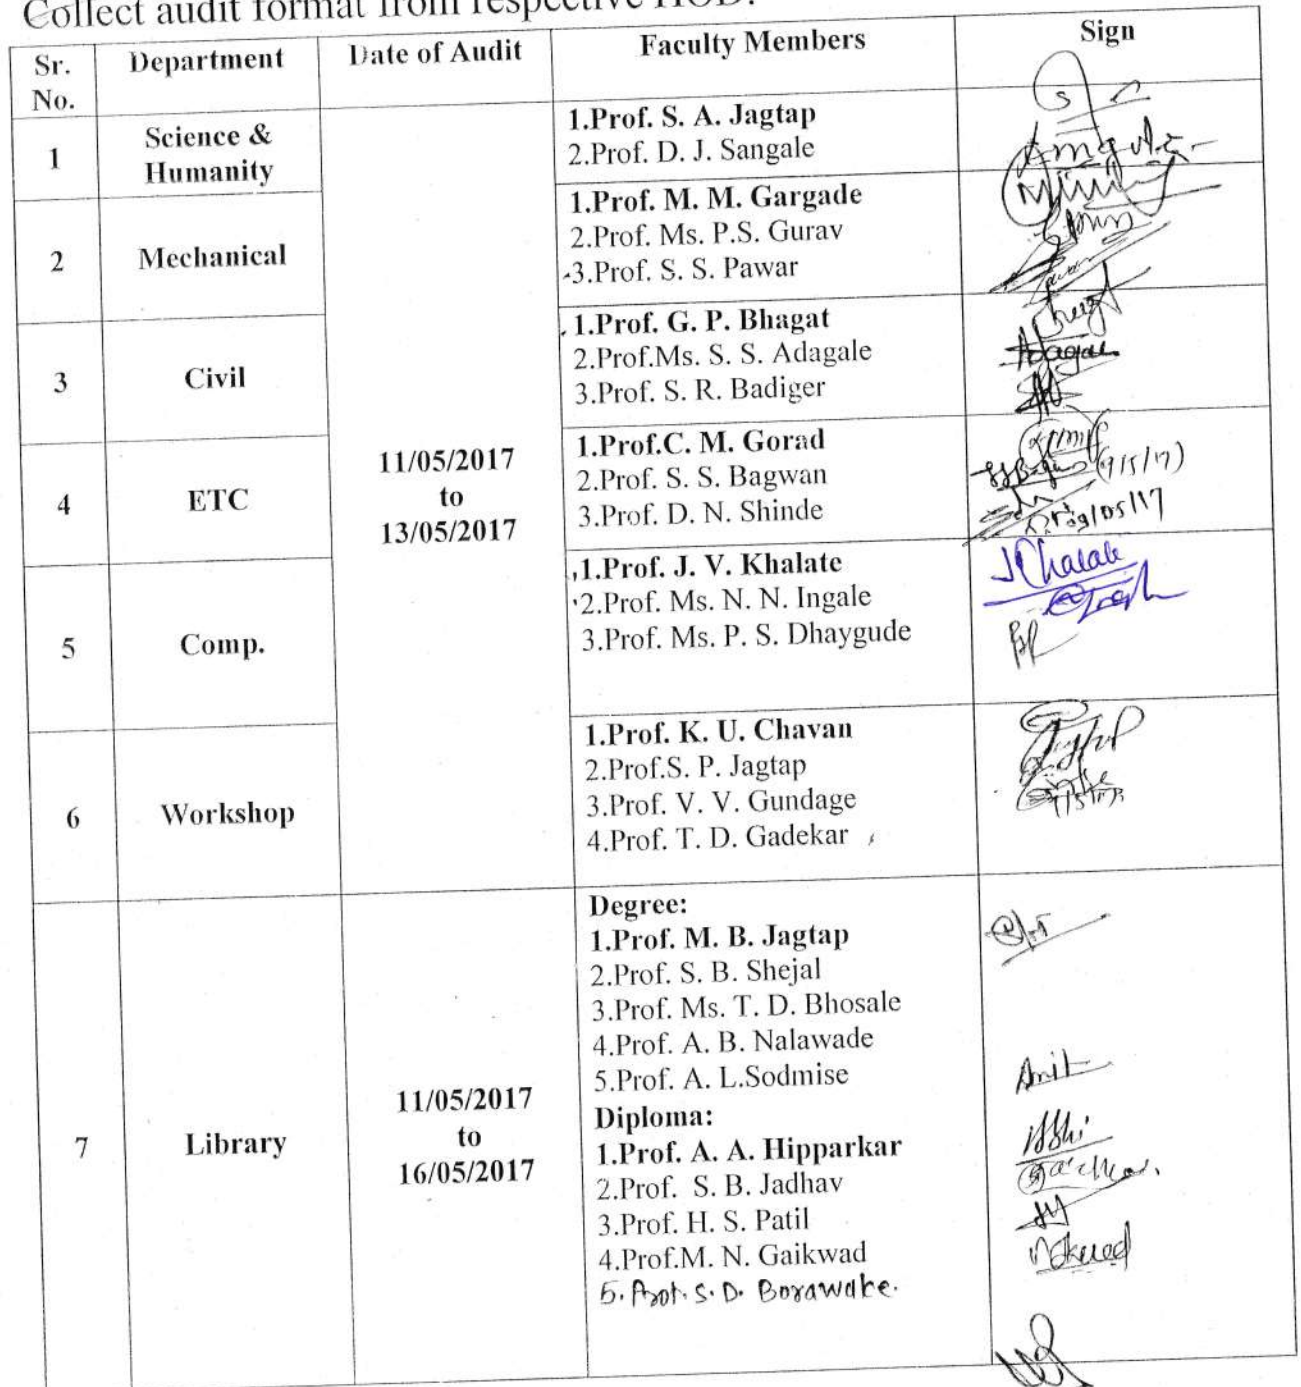 Collect audit format from respective HOD.
Sr. No. Department Date of Audit Faculty Members Sign
1 Science & Humanity
1.Prof. S. A. Jagtap
2.Prof. D. J. Sangale
2 Mechanical
1.Prof. M. M. Gargade
2.Prof. Ms. P.S. Gurav
3.Prof. S. S. Pawar
3 Civil
1.Prof. G. P. Bhagat
2.Prof.Ms. S. S. Adagale
3.Prof. S. R. Badiger
11/05/2017
to
13/05/2017
4 ETC
1.Prof.C. M. Gorad
2.Prof. S. S. Bagwan
3.Prof. D. N. Shinde
5 Comp.
1.Prof. J. V. Khalate
2.Prof. Ms. N. N. Ingale
3.Prof. Ms. P. S. Dhaygude
6 Workshop
1.Prof. K. U. Chavan
2.Prof.S. P. Jagtap
3.Prof. V. V. Gundage
4.Prof. T. D. Gadekar
7 Library
11/05/2017
to
16/05/2017
Degree:
1.Prof. M. B. Jagtap
2.Prof. S. B. Shejal
3.Prof. Ms. T. D. Bhosale
4.Prof. A. B. Nalawade
5.Prof. A. L.Sodmise
Amit
Diploma:
1.Prof. A. A. Hipparkar
2.Prof. S. B. Jadhav
3.Prof. H. S. Patil
4.Prof.M. N. Gaikwad
5. Prof. S. D. Borawake.